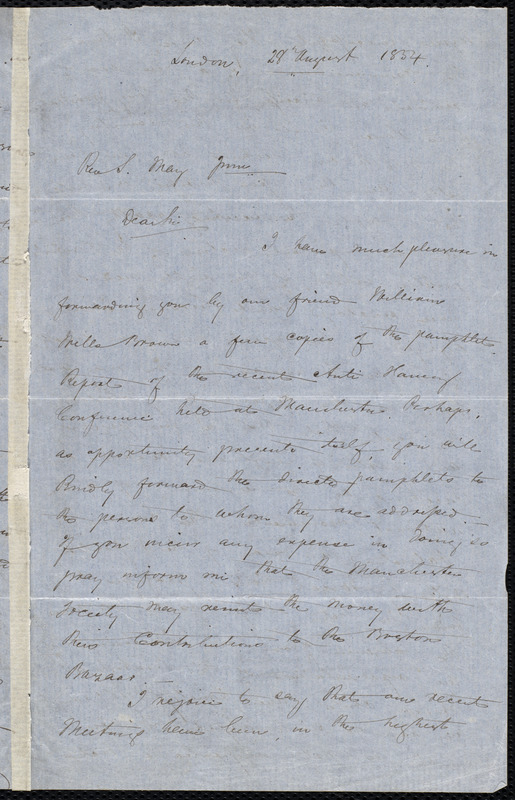 London, 29 August 1854.
Rev S. May Junr
Dear Sir
I have much pleasure in
forwarding you by our friend William
Wells Brown a few copies of the pamphlet
Report of the recent Anti Slavery
Conference held at Manchester. Perhaps,
as opportunity presents itself, you will
kindly forward the directed pamphlets to
the persons to whom they are addressed.
If you incur any expense in doing so
pray inform me that the Manchester
Society may remit the money with
their Contributions to the Boston
Bazaar.
I rejoice to say that our recent
Meetings have been, in the highest